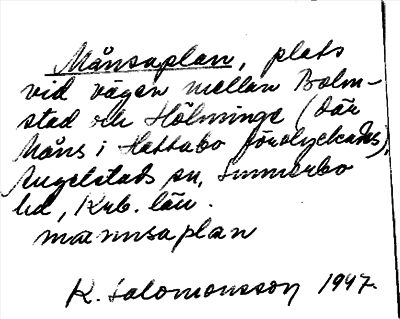 Månsaplan, plats
vid vägen mellan Bolm-
stad och Hölminge (där
Måns i Hattabo förolyckades),
Angelstads sn, Sunnerbo
hd, Krb. län.
mannsaplan
K. Salomonsson 1947.